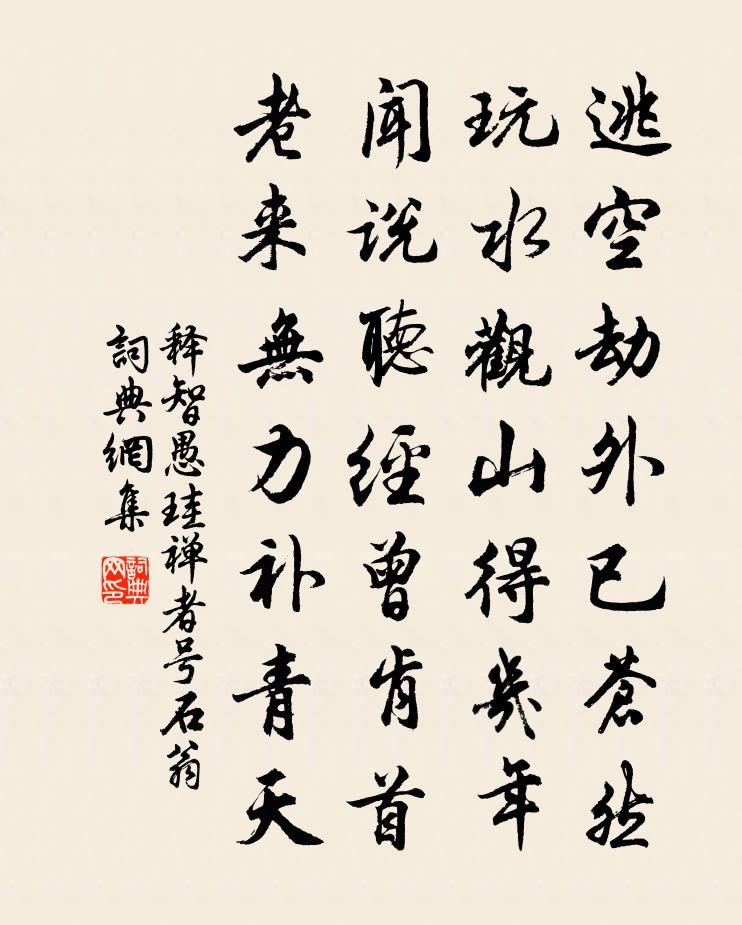 逃空劫外已蒼然
玩水觀山得幾年
聞說聽經曾肯首
老来無力补青天
释智愚珪禅者号石翁
詞典網集
詞典网印